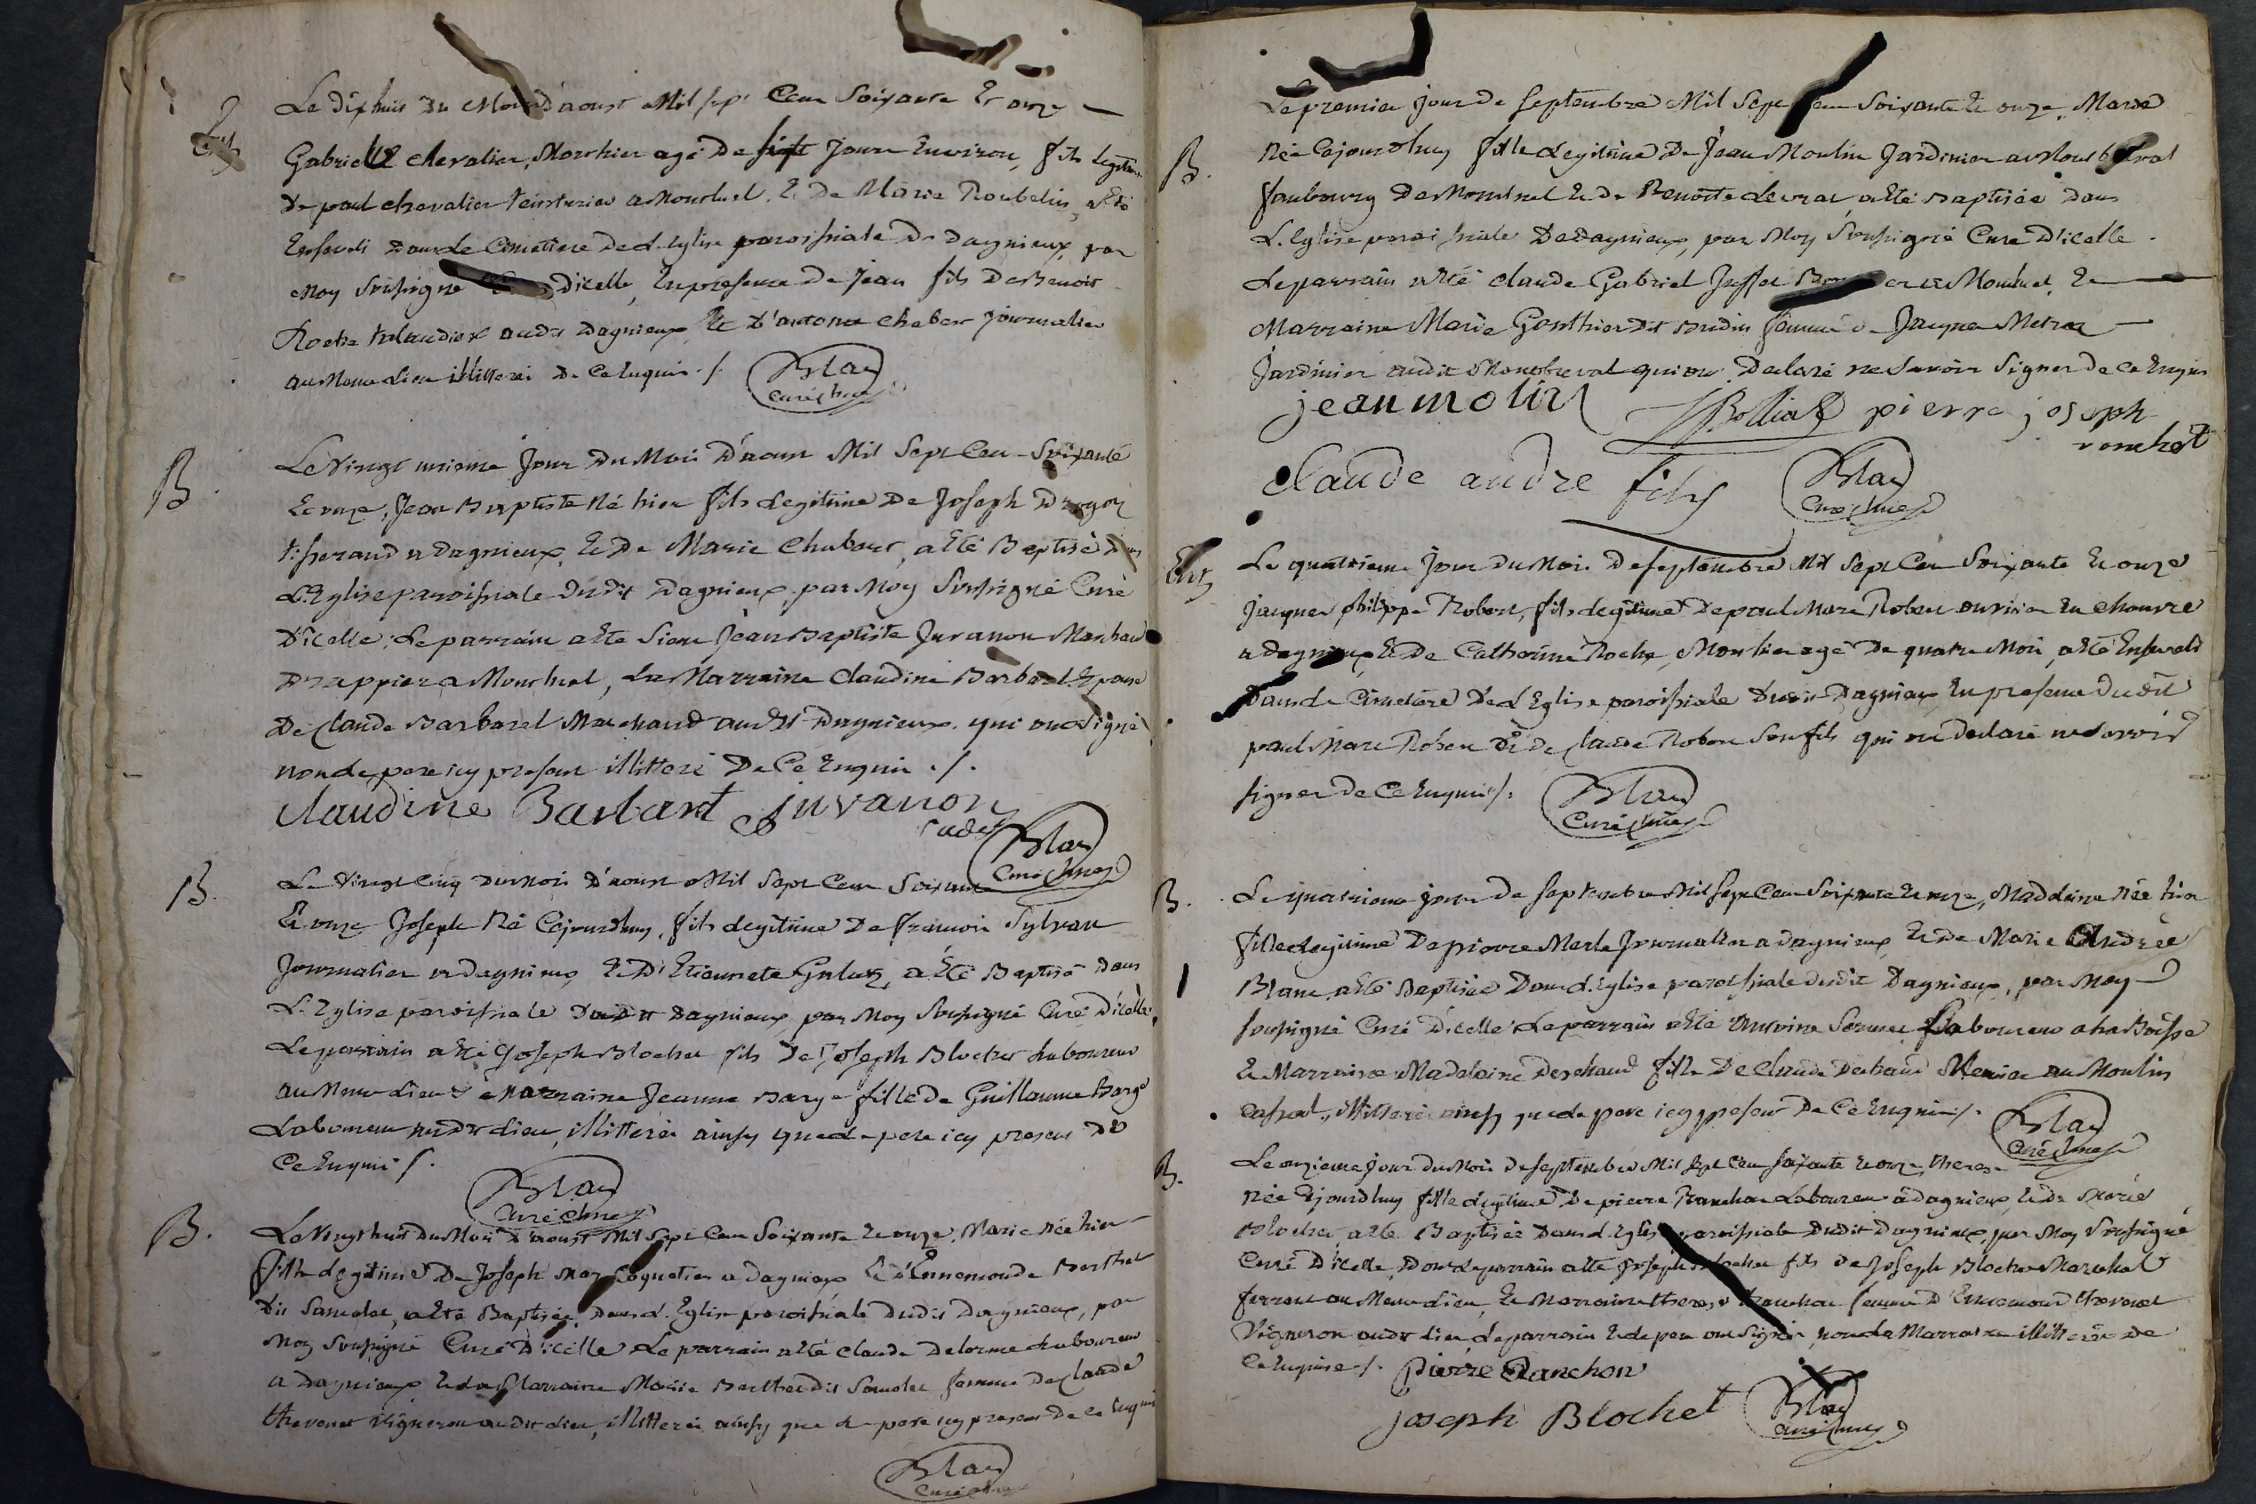 Le dixhuit du Mois d'aoust Mil sept Cent Soixante Et onze
Ent
Gabriel Chevalier, Mort hier agé de sept Jours Environ, fils legitime
De paul chevalier teinturier a Montluel, Et De Marie Roubelin, a Eté
Enseveli dans Le Cimetiere De L'Eglise paroissiale De Dagnieux, par
Moy Soussigné Curé Dicelle, En presence De Jean fils De Benoit
Roche audit Dagnieux Et D'antoine chabert Journalier
au Meme Lieu illitteré De Ce Enquis ./.
Blas
Curé
B.
Le Vingt unieme Jour Du Mois D'aoust Mil Sept Cent Soixante
Et onze, Jean Baptiste Né hier fils Legitime De Joseph Drogon
tisserand a Dagnieux, Et De Marie Chabert, a Eté Baptisé dans
L'Eglise paroissiale Dudit Dagnieux, par Moy Soussigné Curé
D'icelle, Le parrain a Eté Sieur Jean Baptiste Juvanon Marchand
Drappier a Montluel, La Marraine Claudine Barbaret Epouse
De Claude Barbarel Marchand audit Dagnieux qui ont Signé
non le pere icy present illitteré De Ce Enquis ./.
Claudine Barbaret Juvanon
cadet
Blas
Curé
B.
Le Vingt Cinq du Mois D'aoust Mil Sept Cent Soixante
Et onze Joseph Né Cejourdhuy, fils Legitime De françois Sylvan
Journalier a Dagnieux, Et D'Etiennete, a Eté Baptisé Dans
L'Eglise paroissiale Dudit Dagnieux par Moy Soussigné Curé D'icelle,
Le parrain a Eté Joseph Blochet fils De Joseph Blochet Laboureur
au Meme Lieu Et Marraine Jeanne Barge fille De Guillaume Barge
Laboureur audit Lieu, illitterés ainsy que Le pere icy present De
Ce Enquis ./.
Blas
Curé
B.
Le Vingt huit Du Mois D'aoust Mil Sept Cent Soixante Et onze, Marie Née hier
fille Legitime De Joseph Coquetier a Dagnieux Et D'Ennemonde Berthet
Dit Samolet, a Eté Baptisée, Dans L'Eglise paroissiale Dudit Dagnieux, par
Moy Soussigné Curé D'icelle Le parrain a Eté Claude Delorme Laboureur
a Dagnieux Et La Marraine Marie Berthet Dit Samolet femme De Claude
thevenet Vigneron audit Lieu, illitterés ainsy que Le pere icy present De Ce Enquis
Blas
Curé
Le premier Jour De Septembre Mil Sept Cent Soixante Et onze, Marie
B.
Née Cejourdhuy fille Legitime De Jean Moulin Jardinier au
fauxbourg De Montluel Et De Benoite Levrat, a Eté Baptisée Dans
L'Eglise paroissiale De Dagnieux, par Moy Soussigné Curé D'icelle
Le parrain a Eté Claude Gabriel a Montluel, Et
Marraine Marie Gonthier Dit femme De Jaques
Jardinier audit qui ont Declaré ne Savoir Signer de Ce Enquis
jean molin Bolliat pierre joseph
ronchet
Claude andre fils
Blas
Curé
Ent
Le quatrieme Jour Du Mois De Septembre Mil Sept Cent Soixante Et onze
Jaques philippe Robert, fils Legitime De paul Marc Robert ouvrier En Chanvre
a Dagnieux Et De Catherine Roche, Mort hier agé De quatre Mois, a Eté Enseveli
Dans Le Cimetiere De L'Eglise paroissiale Dudit Dagnieux En presence Dudit
paul Marc Robert Et De Claude Robert Son fils qui ont Declaré ne Savoir
Signer De Ce Enquis ./.
Blas
Curé
B.
Le quatrieme Jour De Septembre Mil Sept Cent Soixante Et onze, Maddelaine Née hier
fille Legitime De pierre Merle Journalier a Dagnieux, Et De Marie Andrée
Blanc a Eté Baptisée Dans L'Eglise paroissiale Dudit Dagnieux, par Moy
Soussigné Curé D'icelle Le parrain a Eté Antoine Laboureur a La Boisse
Et Marraine Madelaine Dechaud fille De Claude Dechaud Meunier au Moulin
illitterés ainsy que Le pere icy present De Ce Enquis ./.
Blas
Curé
B.
Le onzieme Jour Du Mois De Septembre Mil Sept Cent Soixante Et onze therese
Née Cejourdhuy fille Legitime De pierre Ranchon Laboureur a Dagnieux, Et De Marie
Blochet, a Eté Baptisée Dans L'Eglise paroissiale Dudit Dagnieux, par Moy Soussigné
Curé D'icelle, Dont Le parrain a Eté Joseph Blochet fils De Joseph Blochet Marechal
ferrant au Meme Lieu, Et Marraine therese Ranchon femme D'Ennemond thevenet
Vigneron audit Lieu, Le parrain Et Le pere ont Signé, non La Marraine illitterée De
Ce Enquise ./. pierre Ranchon
joseph Blochet
Blas
Curé